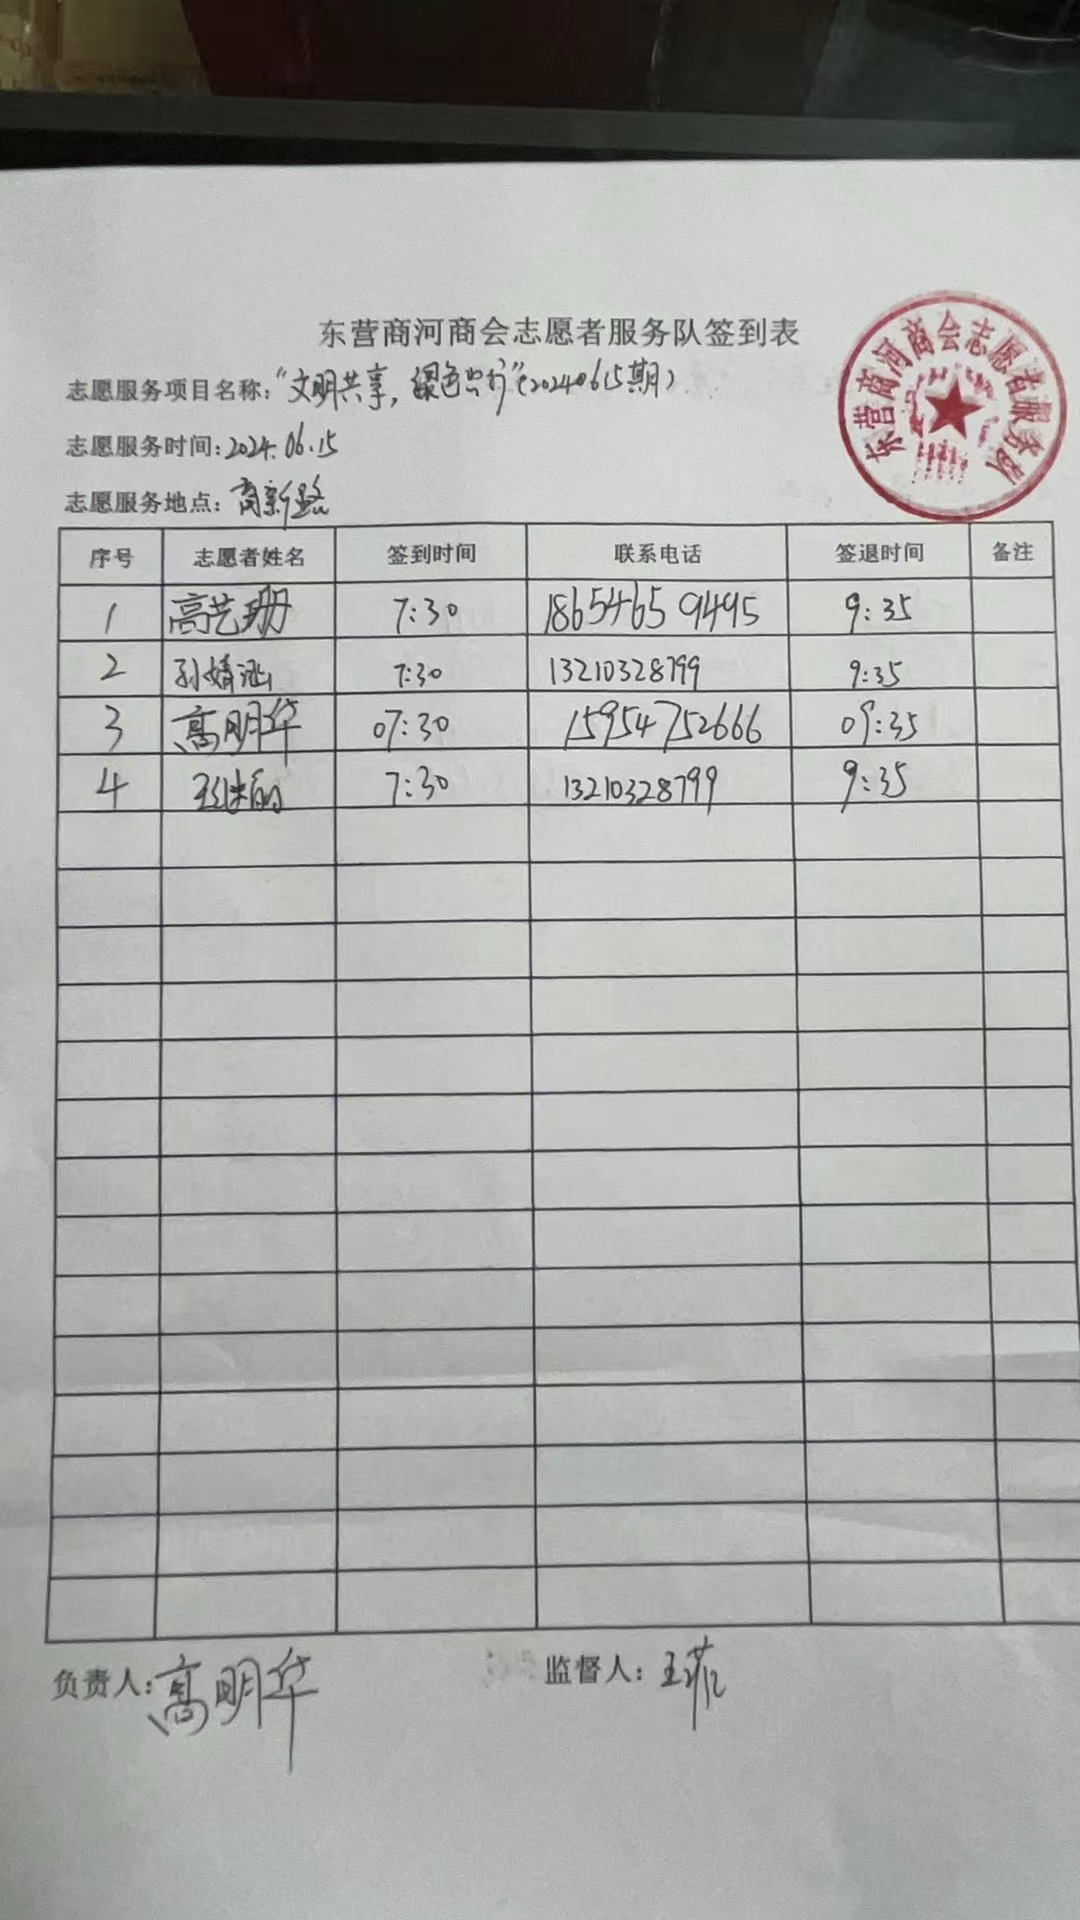 东营商河商会志愿者服务队签到表
东营商河商会志愿者服务队
志愿服务项目名称："文明共享，绿色出行"（20240615期）
志愿服务时间：2024.06.15
志愿服务地点：商新路
序号 志愿者姓名 签到时间 联系电话 签退时间 备注
1 高艺珊 7:30 18654659495 9:35
2 孙婧涵 7:30 13210328799 9:35
3 高明华 07:30 15954752666 09:35
4 7:30 13210328799 9:35
负责人：高明华 监督人：王菲